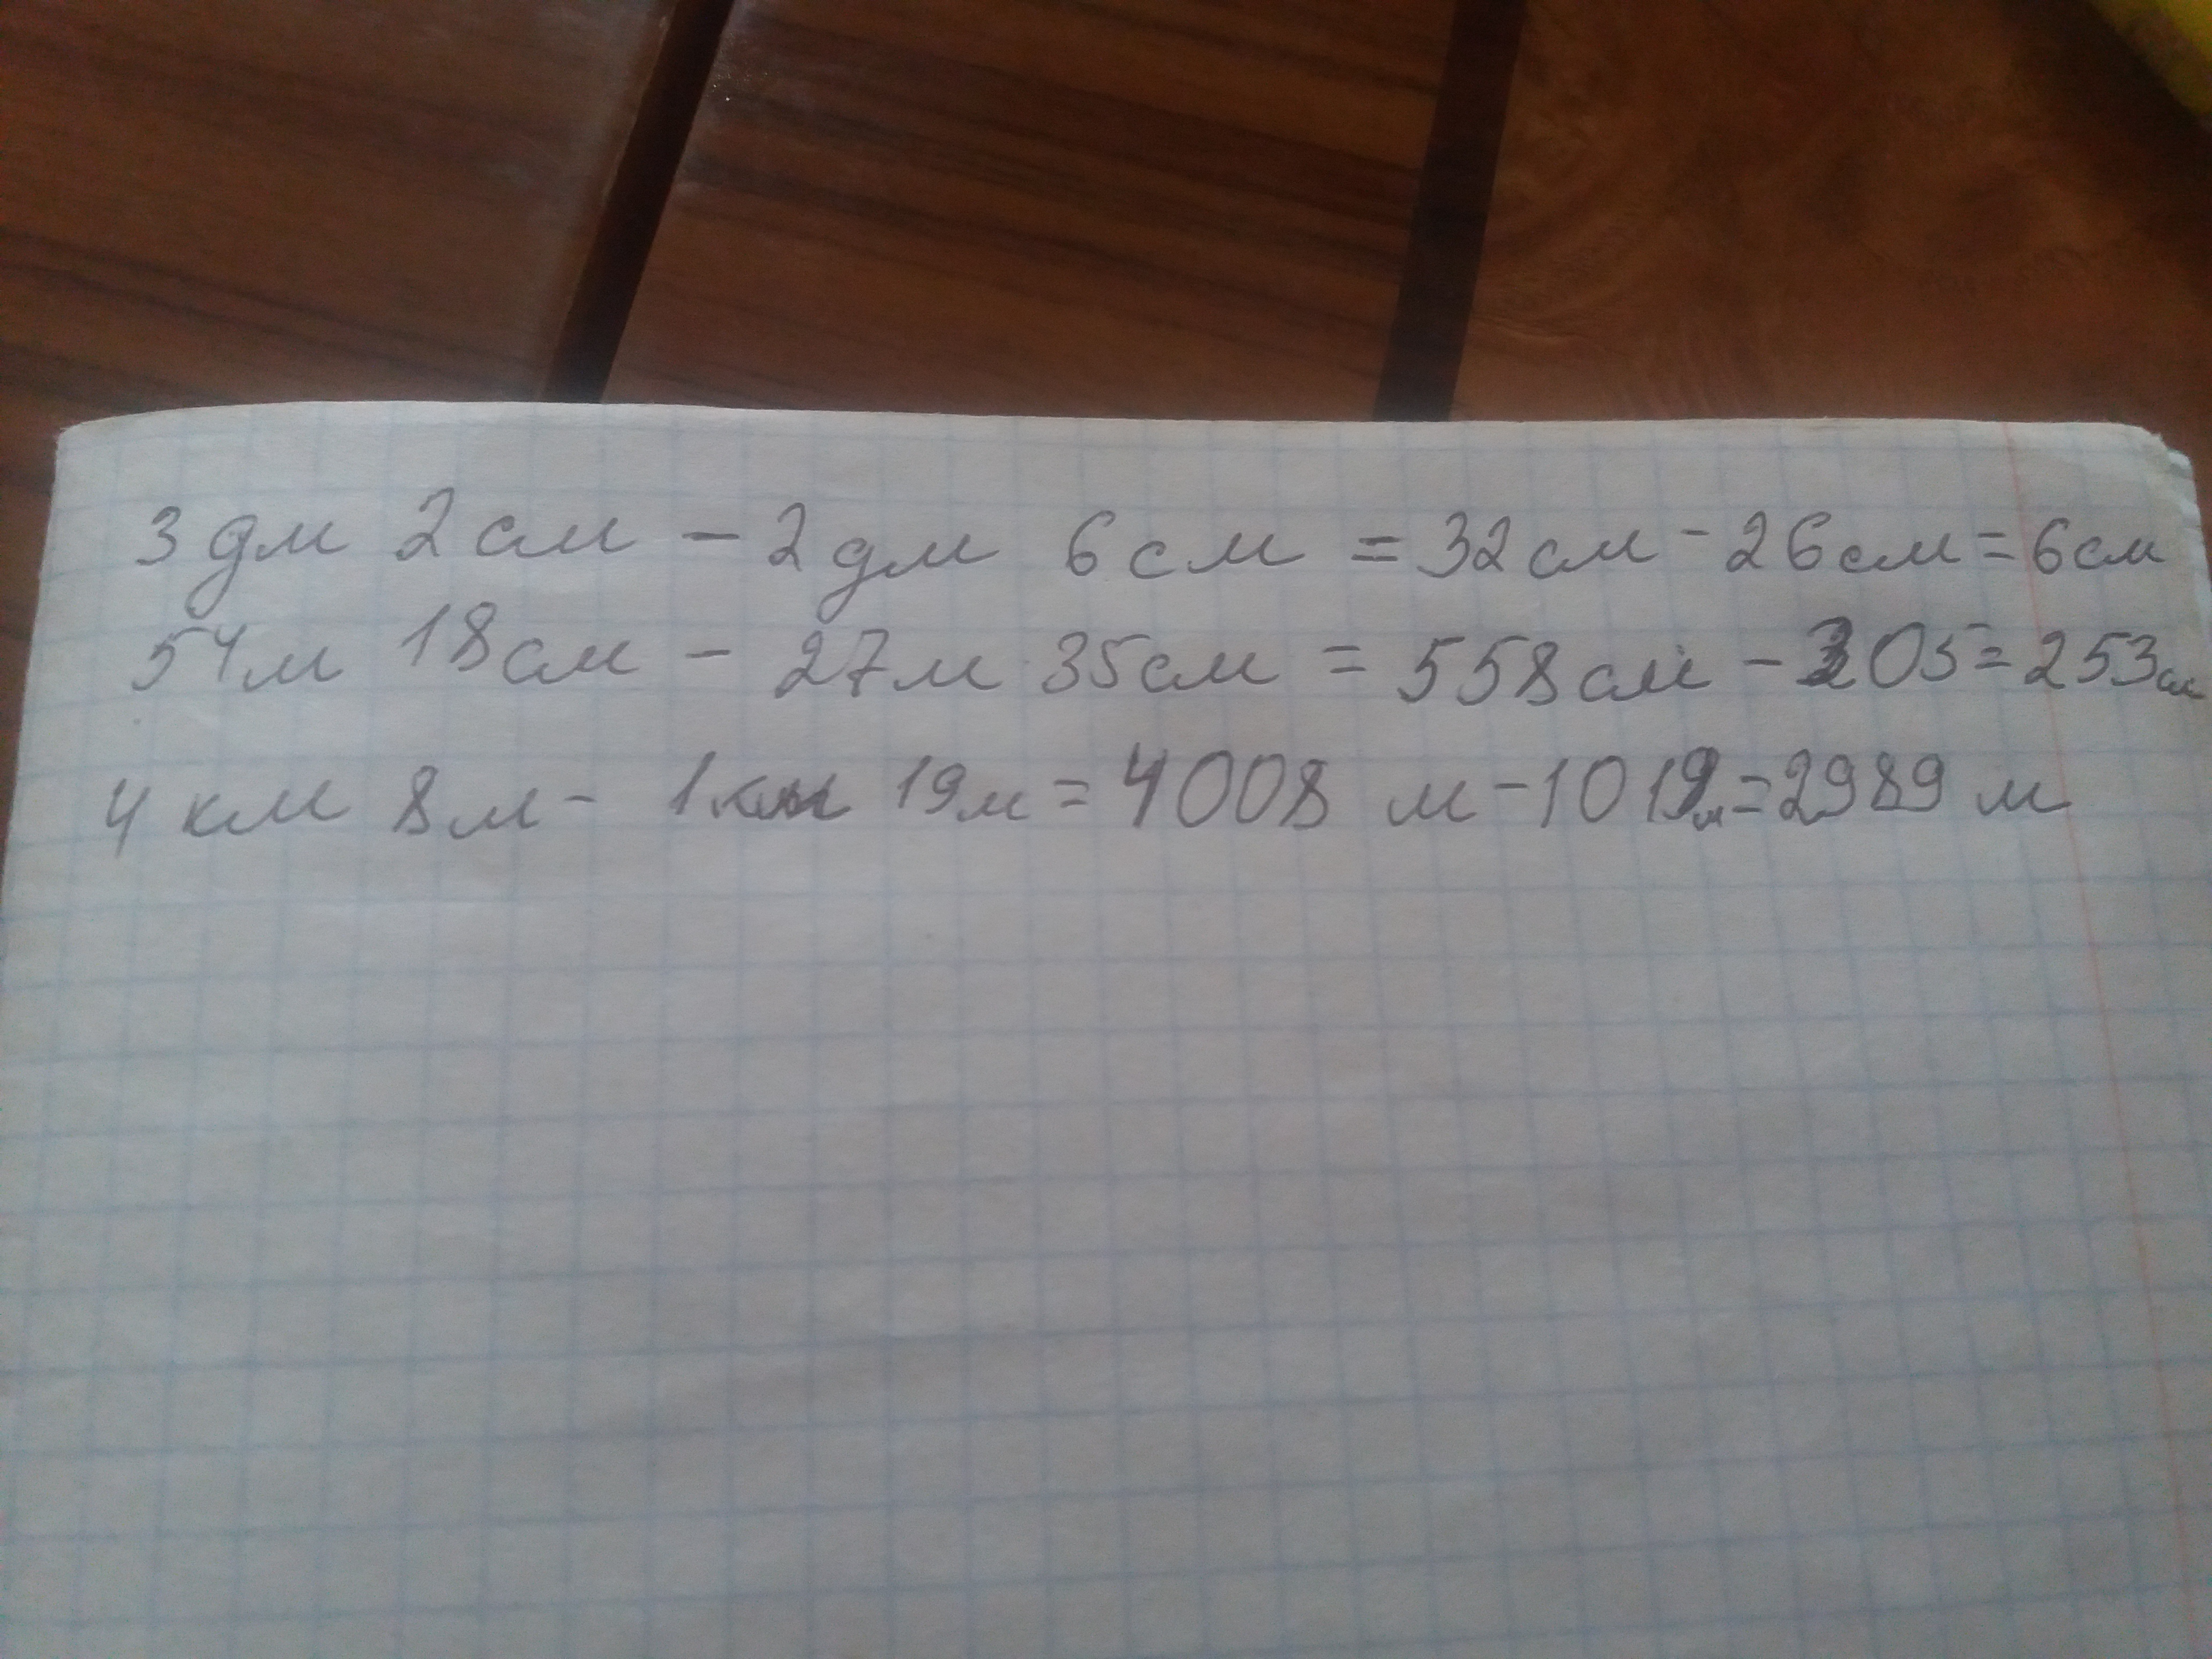 3 дм 2 см - 2 дм 6 см = 32 см - 26 см = 6 см
54 м 18 см - 27 м 35 см = 558 см - 305 = 253 см
4 км 8 м - 1 км 19 м = 4008 м - 1019 м = 2989 м